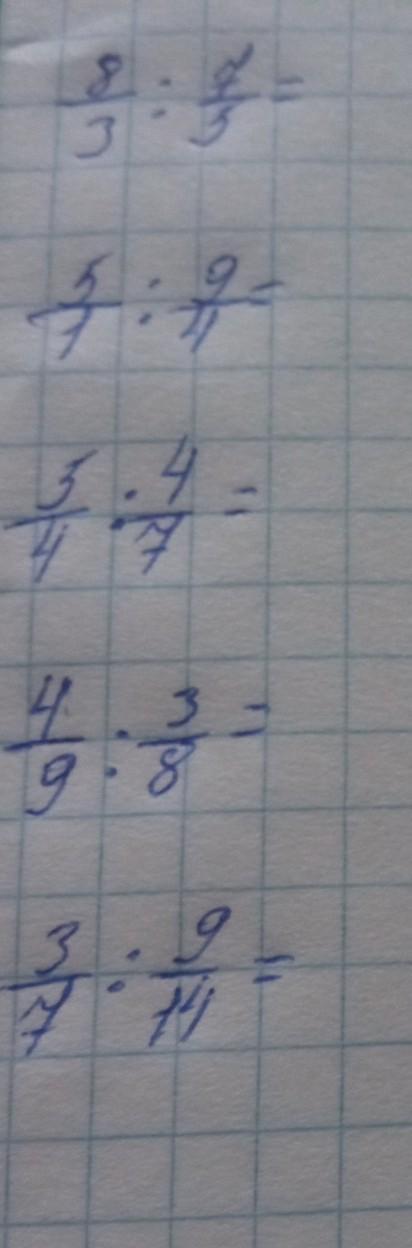 8/3 : 7/5 =
5/1 : 9/4 =
5/4 : 4/7 =
4/9 : 3/8 =
3/7 : 9/14 =